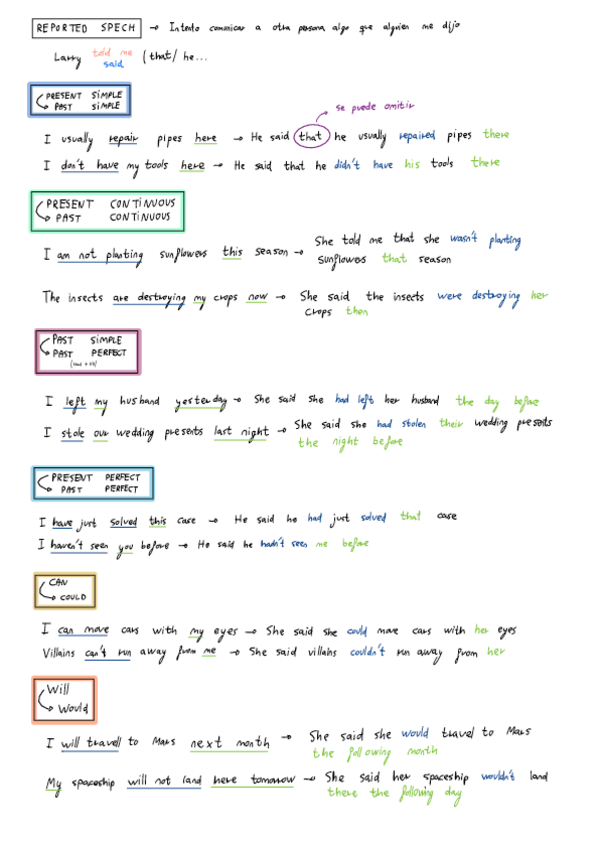 REPORTED SPECH → Intento comunicar a otra persona algo que alguien me dijo
Larry told me (that/ he...
said
PRESENT SIMPLE
PAST SIMPLE
se puede omitir
I usually repair pipes here → He said that he usually repaired pipes there
I don't have my tools here → He said that he didn't have his tools there
PRESENT CONTINUOUS
PAST CONTINUOUS
I am not planting sunflowers this season → She told me that she wasn't planting
sunflowers that season
The insects are destroying my crops now → She said the insects were destroying her
crops then
PAST SIMPLE
PAST PERFECT
I left my husband yesterday → She said she had left her husband the day before
I stole our wedding presents last night → She said she had stolen their wedding presents
the night before
PRESENT PERFECT
PAST PERFECT
I have just solved this case → He said he had just solved that case
I haven't seen you before → He said he hadn't seen me before
CAN
COULD
I can move cars with my eyes → She said she could move cars with her eyes
Villains can't run away from me → She said villains couldn't run away from her
Will
Would
I will travell to Mars next month → She said she would travel to Mars
the following month
My spaceship will not land here tomorrow → She said her spaceship wouldn't land
there the following day